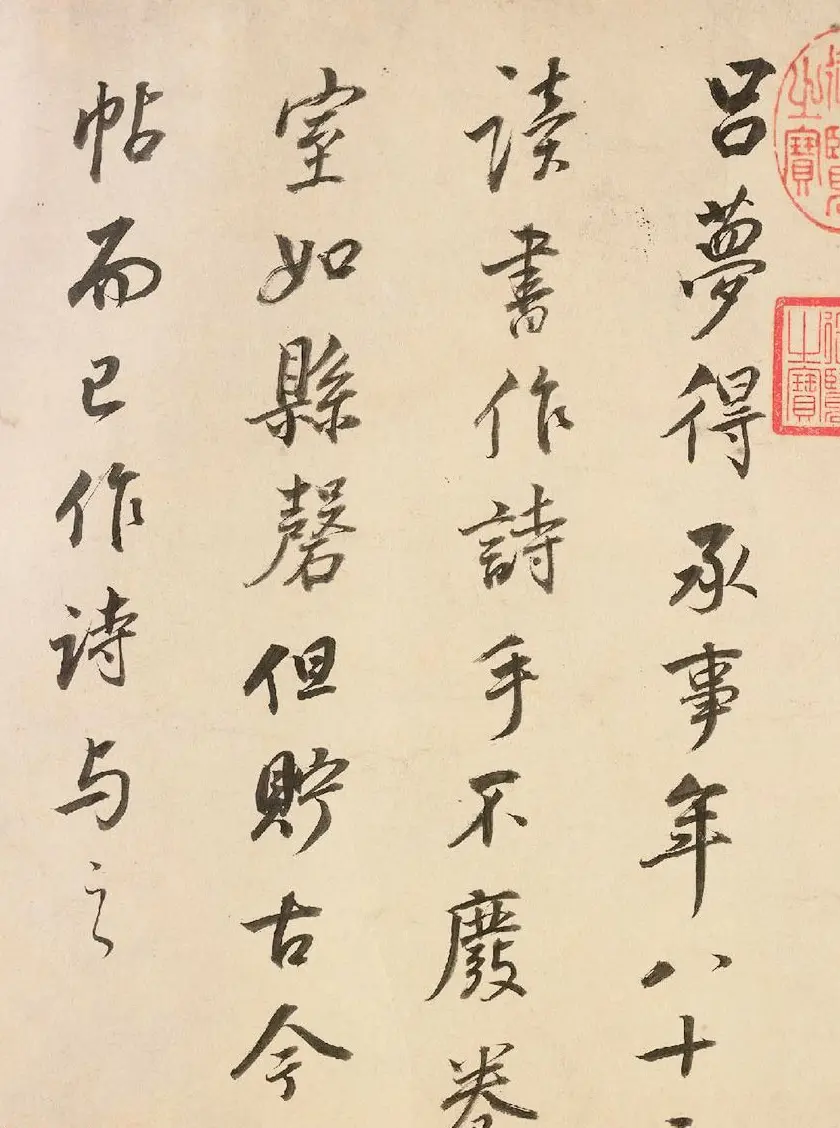 之寶
之寶
呂夢得承事年八十
讀書作詩手不廢卷
室如縣磬但貯古今
帖而已作詩与之